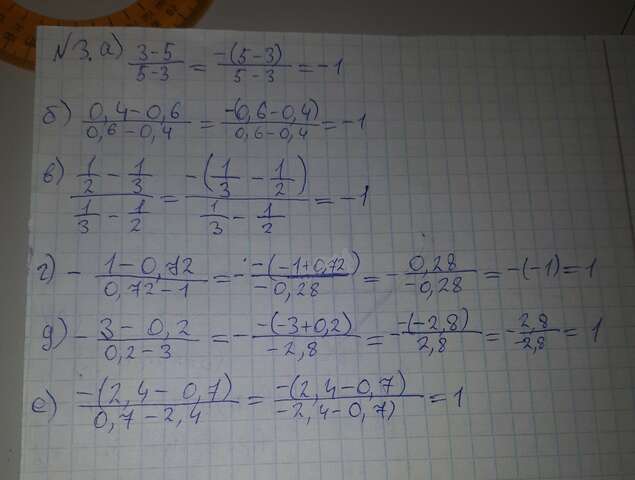 №3. а) \frac{3-5}{5-3} = \frac{-(5-3)}{5-3} = -1
б) \frac{0,4-0,6}{0,6-0,4} = \frac{-(0,6-0,4)}{0,6-0,4} = -1
в) \frac{\frac{1}{2}-\frac{1}{3}}{\frac{1}{3}-\frac{1}{2}} = \frac{-(\frac{1}{3}-\frac{1}{2})}{\frac{1}{3}-\frac{1}{2}} = -1
г) -\frac{1-0,72}{0,72-1} = -\frac{-(-1+0,72)}{-0,28} = -\frac{0,28}{-0,28} = -(-1) = 1
д) -\frac{3-0,2}{0,2-3} = -\frac{-(-3+0,2)}{-2,8} = -\frac{-(-2,8)}{2,8} = -\frac{2,8}{-2,8} = 1
е) \frac{-(2,4-0,7)}{0,7-2,4} = \frac{-(2,4-0,7)}{-2,4-0,7)} = 1